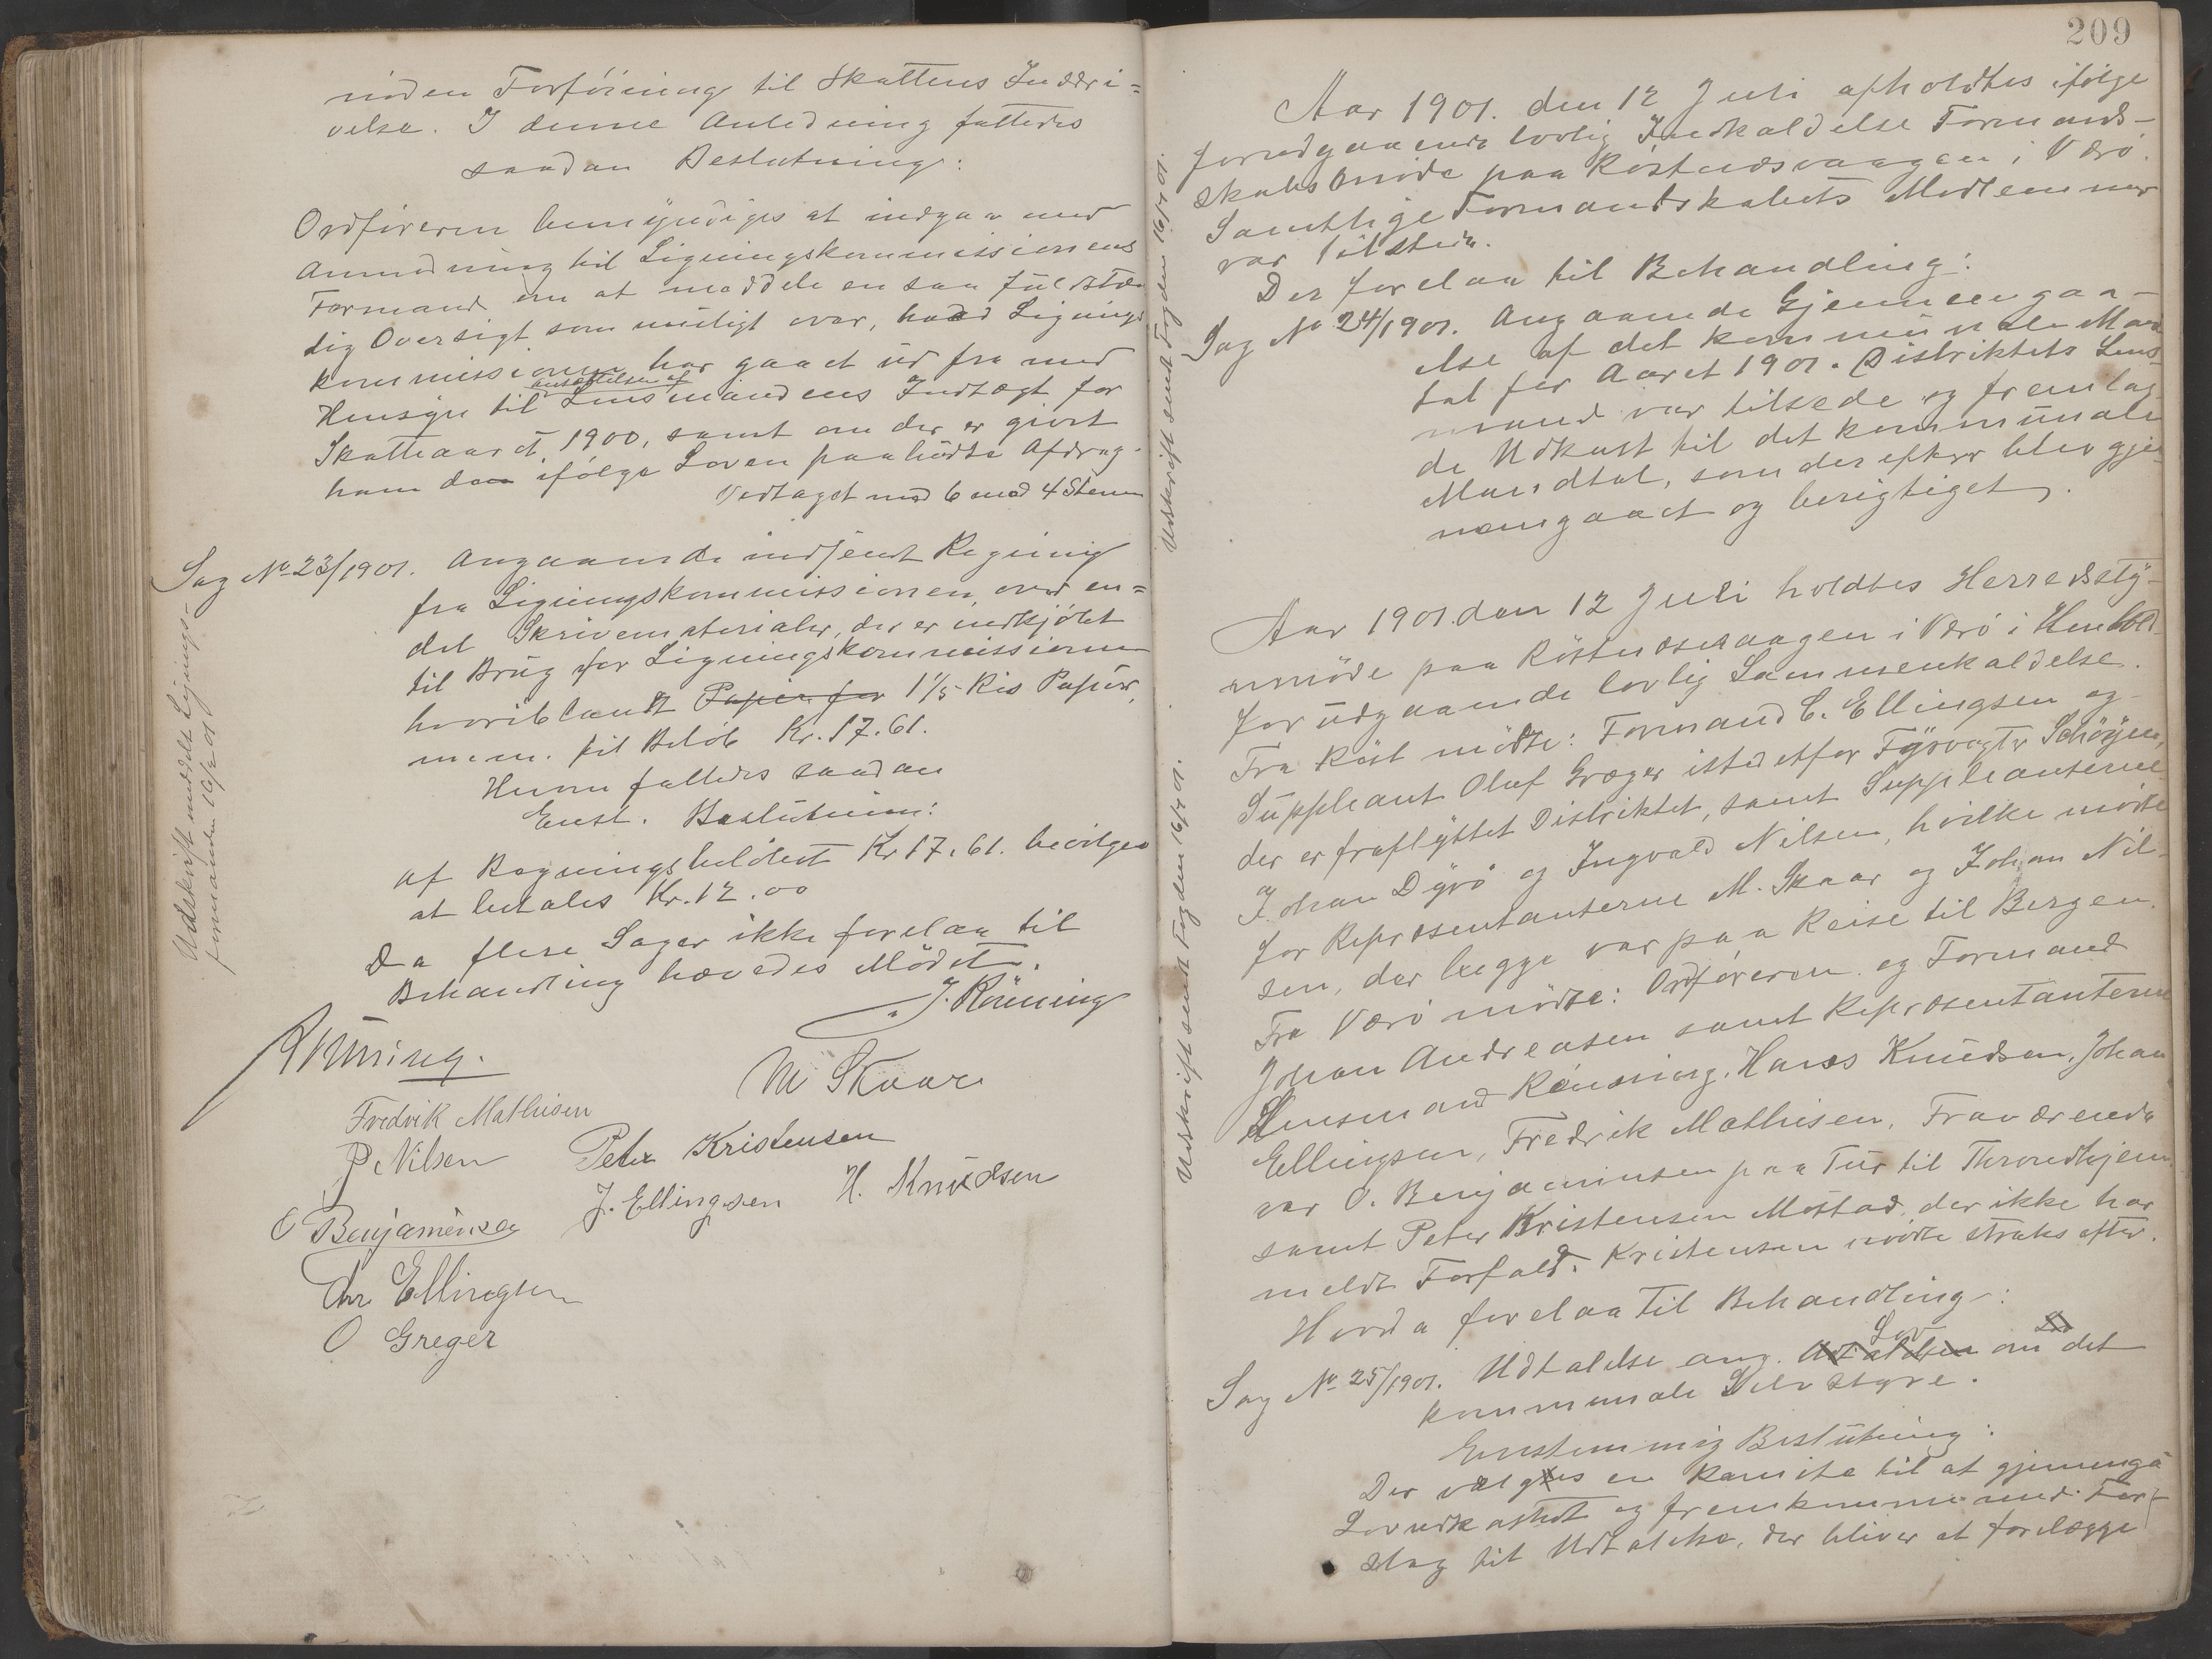 nøden Forføining til Skattens Inddri=
velse. I denne Anledning fattedes
saadan Beslutning:
Ordføreren bemyndiges at indgaa med
Anmodning til Ligningskommissionens
Formand om at meddele en saa fuldstæn
dig Oversigt som muligt over, hvad Lignings
kommissionen har gaaet ud fra med
Hensyn til ansættelsen af Lensmandens Indtægt for
Skatteaaret 1900, samt om der er gjort
ham den ifølge Loven paabudte Afdrag.
Vedtaget med 6 mod 4 Stem
Sag No 23/1901. Angaaende indsendt Regning
fra Ligningskommissionen over en=
del Skrivematerialer, der er indkjøbt
til Brug for Ligningskommissionen
hvoriblandt Papir for 1 1/5 Ris Papir,
m.m. til Beløb Kr. 17.61.
Herom fattedes saadan
Enst. Beslutning:
af Regningsbeløbet Kr 17.61. bevilges
at betales Kr. 12.00
Da flere Sager ikke forelaa til
Behandling hævedes Mødet.
J. Rönning
Rönning.
M Skaar
Fredrik Mathisen
P Nilsen Peter Kristensen
O Benjaminsen J. Ellingsen H. Knudsen
Chr Ellingsen
O Greger
Udskrift meddelt Lignings-
formanden 16/7 01
209
Udskrift sendt Fogden 16/7 01.
Udskrift sendt Fogden 16/7 01.
Aar 1901. den 12 Juli afholdtes ifølge
forudgaaende lovlig Indkaldelse Formand-
skabsmøde paa Røstnæsvaagen i Værø.
Samtlige Formandskabets Medlemmer
var tilstede.
Der forelaa til Behandling:
Sag No 24/1901. Angaaende Gjennemgaa-
else af det kommunale Mand
tal for Aaret 1901. Distriktets Lens
mand var tilstede og fremlag
de Udkast til det kommunale
Mandtal, som derefter blev gjen
nemgaaet og berigtiget.
Aar 1901. den 12 Juli holdtes Herredsty-
rmøde paa Røstnæsvaagen i Værø i Henhold
forudgaaende lovlig Sammenkaldelse.
Fra Røst mødte: Formand C. Ellingsen og
Suppleant Oluf Greger istedetfor Fyrvogter Schøyen,
der er fraflyttet Distriktet, samt Suppleanterne
Johan Dyrø og Ingvald Nilsen, hvilke mødte
for Repræsentanterne M. Skaar og Johan Nil-
sen, der begge var paa Reise til Bergen.
Fra Værø mødte: Ordføreren og Formand
Johan Andreasen samt Repræsentanterne
Lensmand Rönning, Hans Knudsen, Johan
Ellingsen, Fredrik Mathisen. Fraværende
var O. Benjaminsen paa Tur til Throndhjem
samt Peter Kristensen Mostad, der ikke har
meldt Forfald. Kristensen mødte straks efter.
Hvorda forelaa til Behandling:
Sag No 25/1901. Udtalelse ang. Lov om det
kommunale Selvstyre.
Enstemmig Beslutning:
Der vælges en Komite til at gjennemgå
Lovudkastet og fremkomme med For-
slag til Udtalelse, der bliver at forelægge